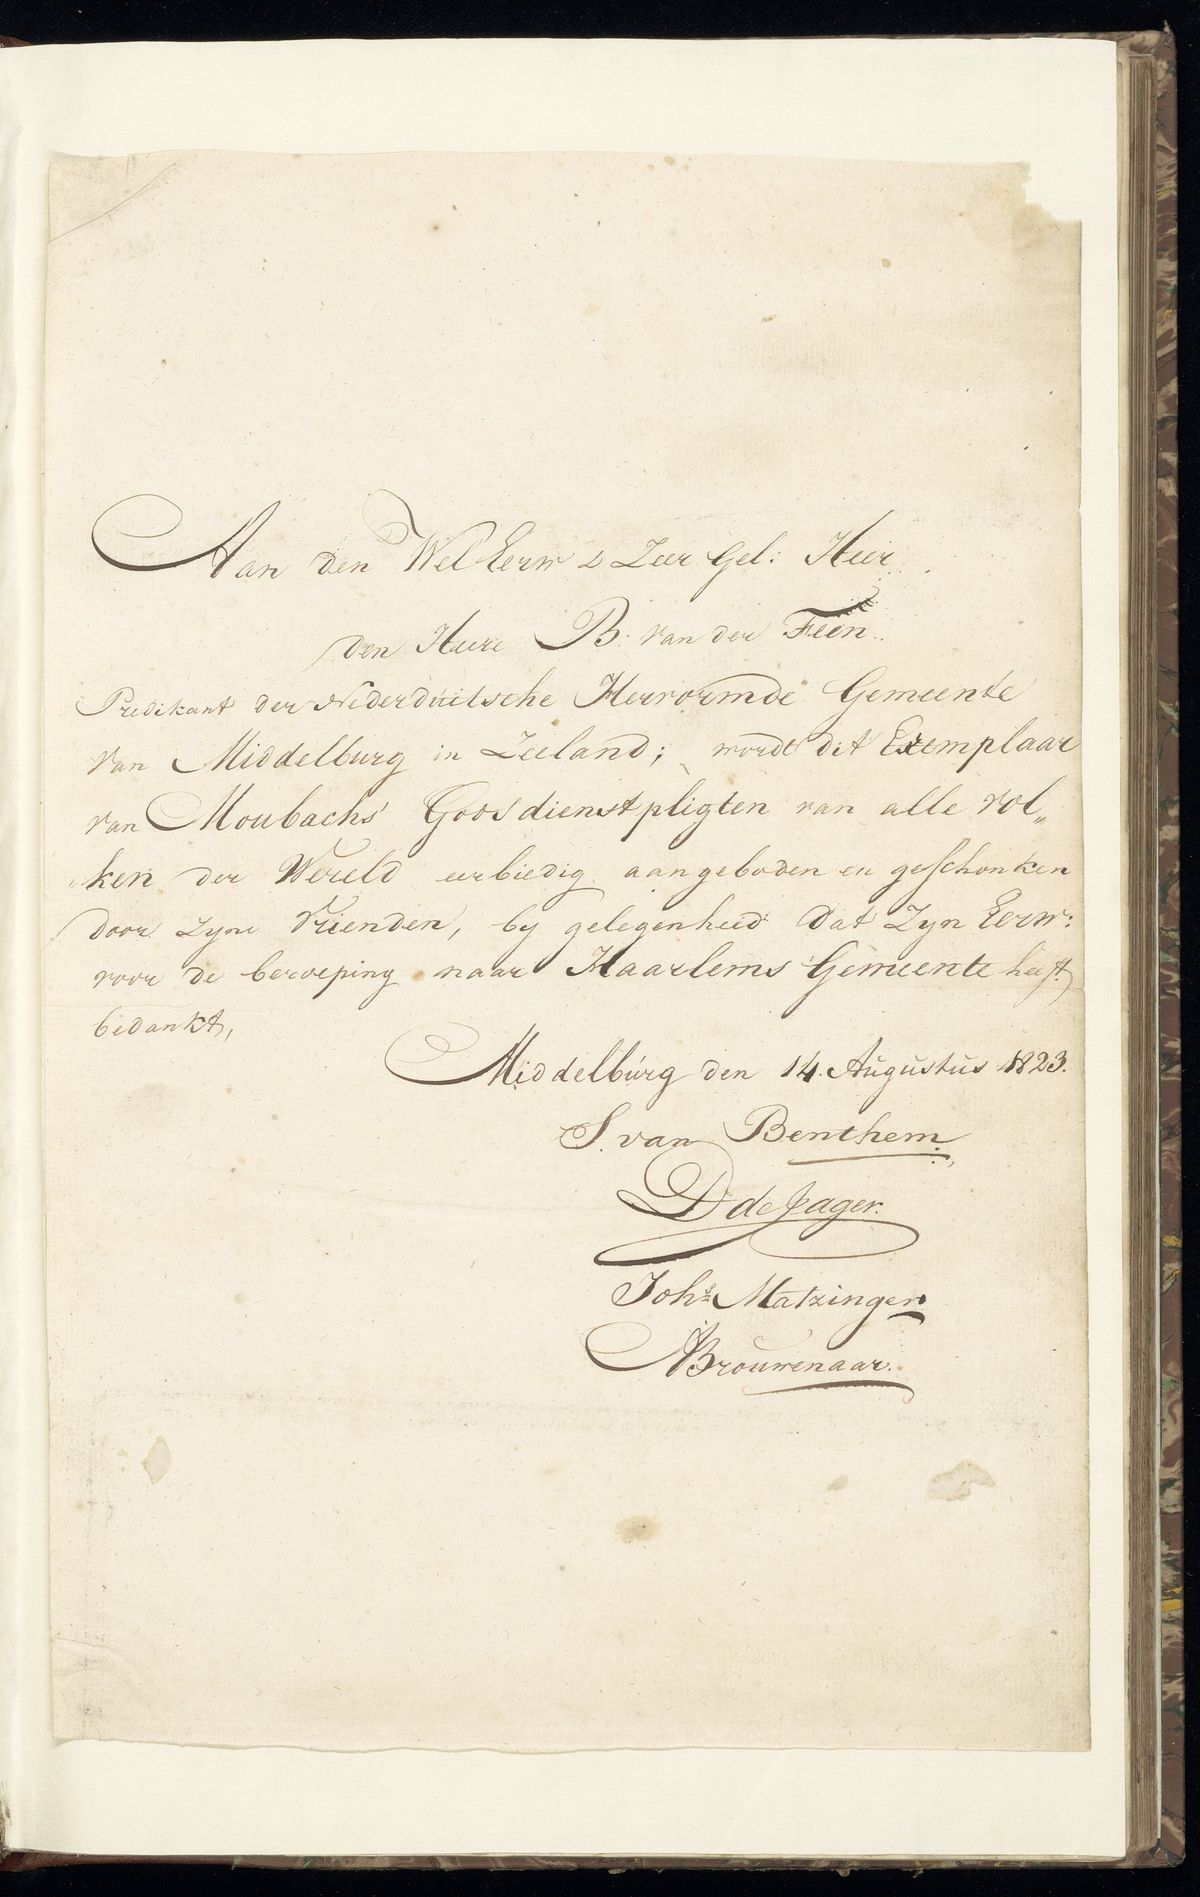 Aan den Wel Eerw & Zeer Gel: Heer
den Heere B. van der Feen
Predikant der Nederduitsche Hervormde Gemeente
van Middelburg in Zeeland; wordt dit Exemplaar
van Moubachs Goosdienstpligten van alle vol„
„ken der Wereld eerbiedig aangeboden en geschonken
door zyne Vrienden, by gelegenheid dat Zyn Eerw:
voor de beroeping naar Haarlems Gemeente heeft
bedankt,
Middelburg den 14. Augustus 1823.
S. van Benthem
D de Jager.
Johs Matzinger
ABrouwenaar.